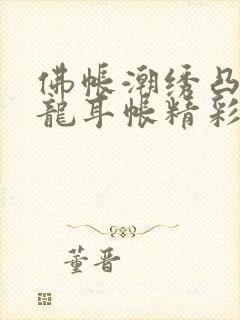 佛帐潮绣凸
龍耳帐精彩
董晋